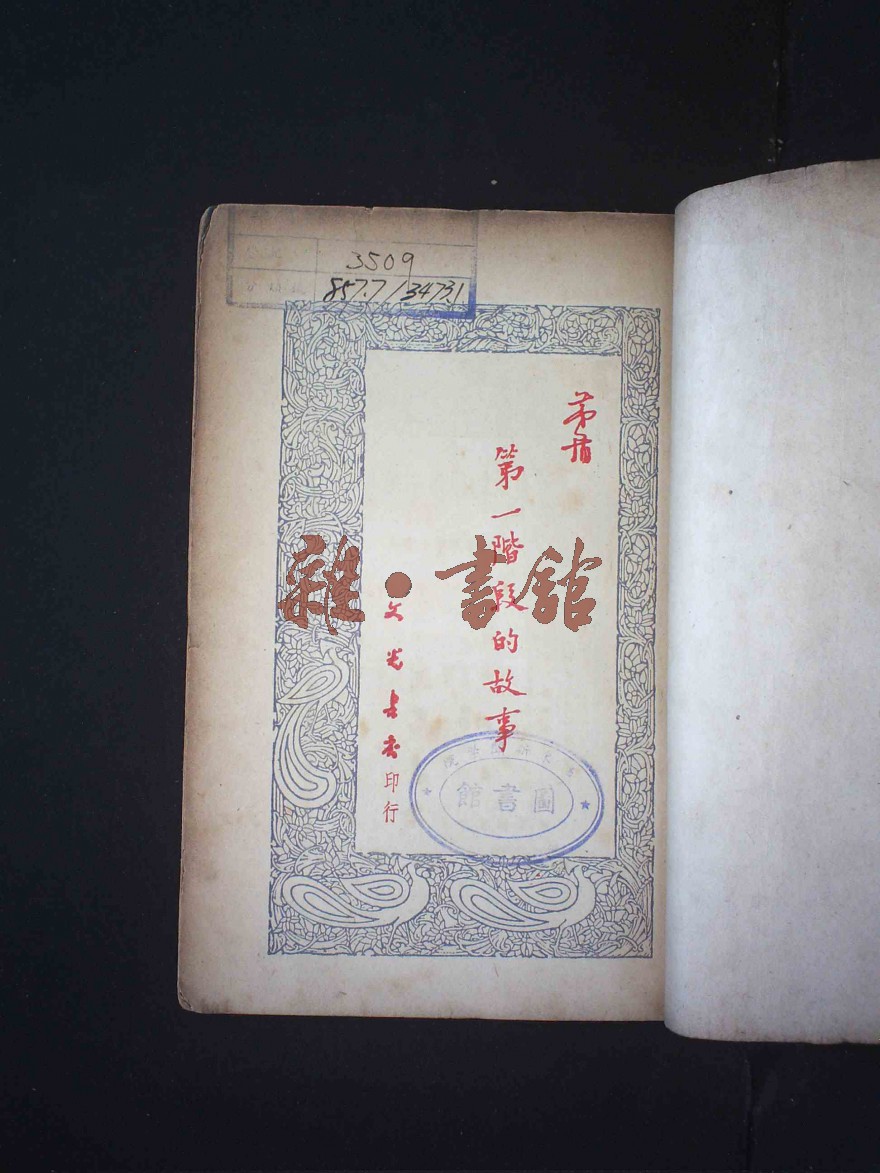 3509
857.7/3473.1
茅盾
第一階段的故事
文光書店印行
雜·書館
圖書館